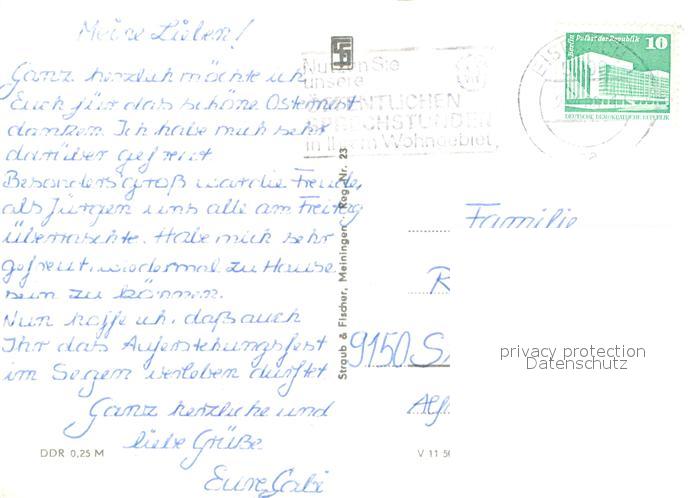 Meine Lieben!
Ganz herzlich möchte ich
Euch für das schöne Osternest
danken. Ich habe mich sehr
darüber gefreut
Besonders groß war die Freude,
als Jürgen uns alle am Freitag
überraschte. Habe mich sehr
gefreut, wiedermal zu Hause
sein zu können.
Nun hoffe ich, daß auch
Ihr das Auferstehungsfest
im Segen verleben durftet.
Ganz herzliche und
liebe Grüße
Eure Gabi
DDR 0,25 M
Straub & Fischer, Meiningen Reg.-Nr. 23
Nutzen Sie
unsere
ÖFFENTLICHEN
SPRECHSTUNDEN
in Ihrem Wohngebiet,
Berlin Palast der Republik
10
DEUTSCHE DEMOKRATISCHE REPUBLIK
Familie
R
9150 S
privacy protection
Datenschutz
V 11 50